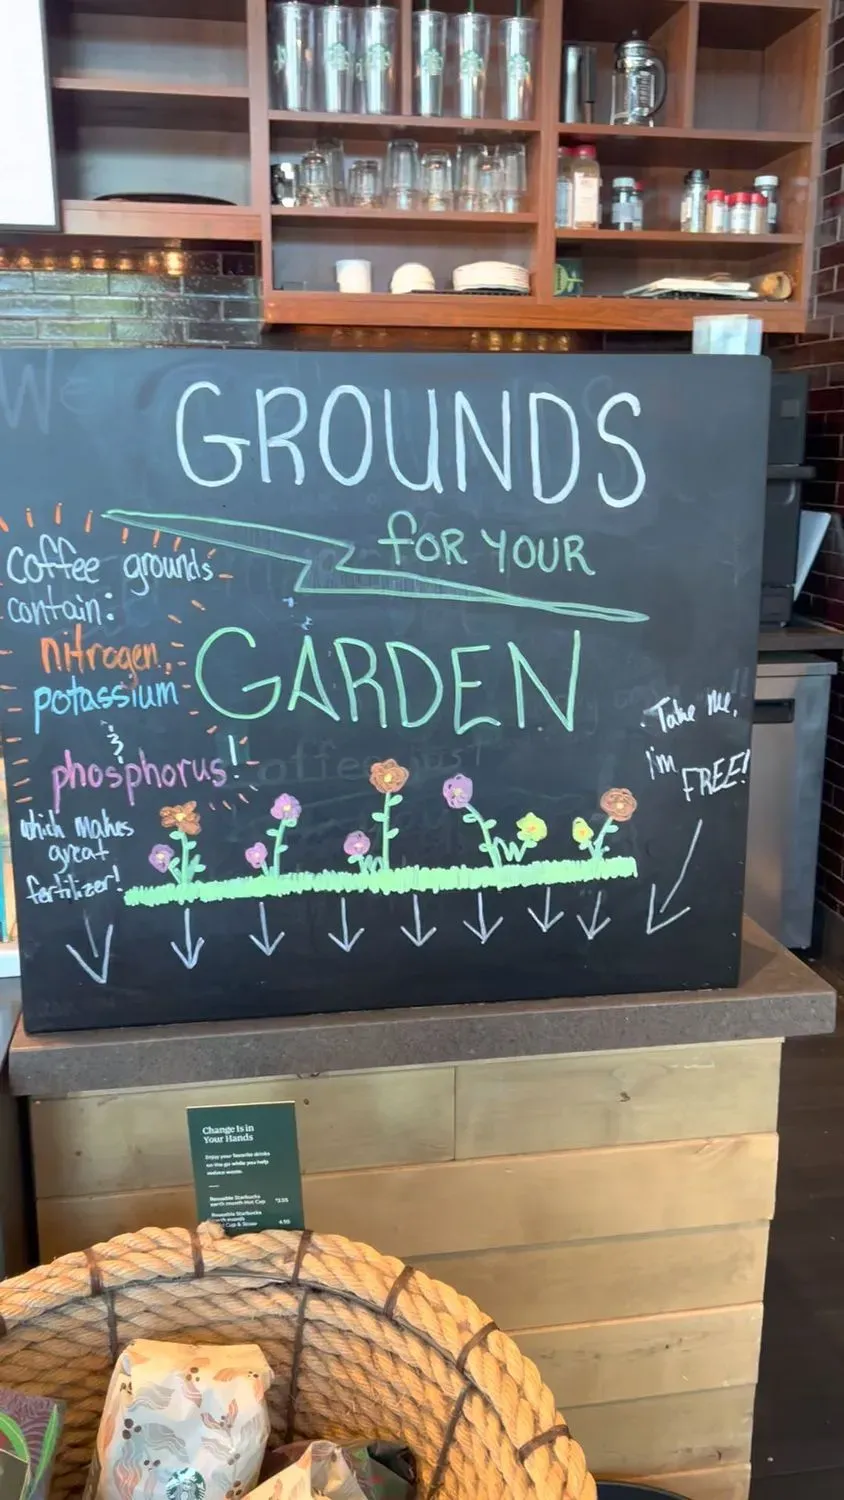 GROUNDS
for YOUR
GARDEN
Coffee grounds
contain:
nitrogen,
potassium
&
phosphorus!
which makes
great
fertilizer!
Take me,
I'm
FREE!
Change Is in
Your Hands
Enjoy your favorite drinks
on the go while you help
reduce waste.
Reusable Starbucks
earth month Hot Cup
Reusable Starbucks
earth month
Cup & Straw 4.95